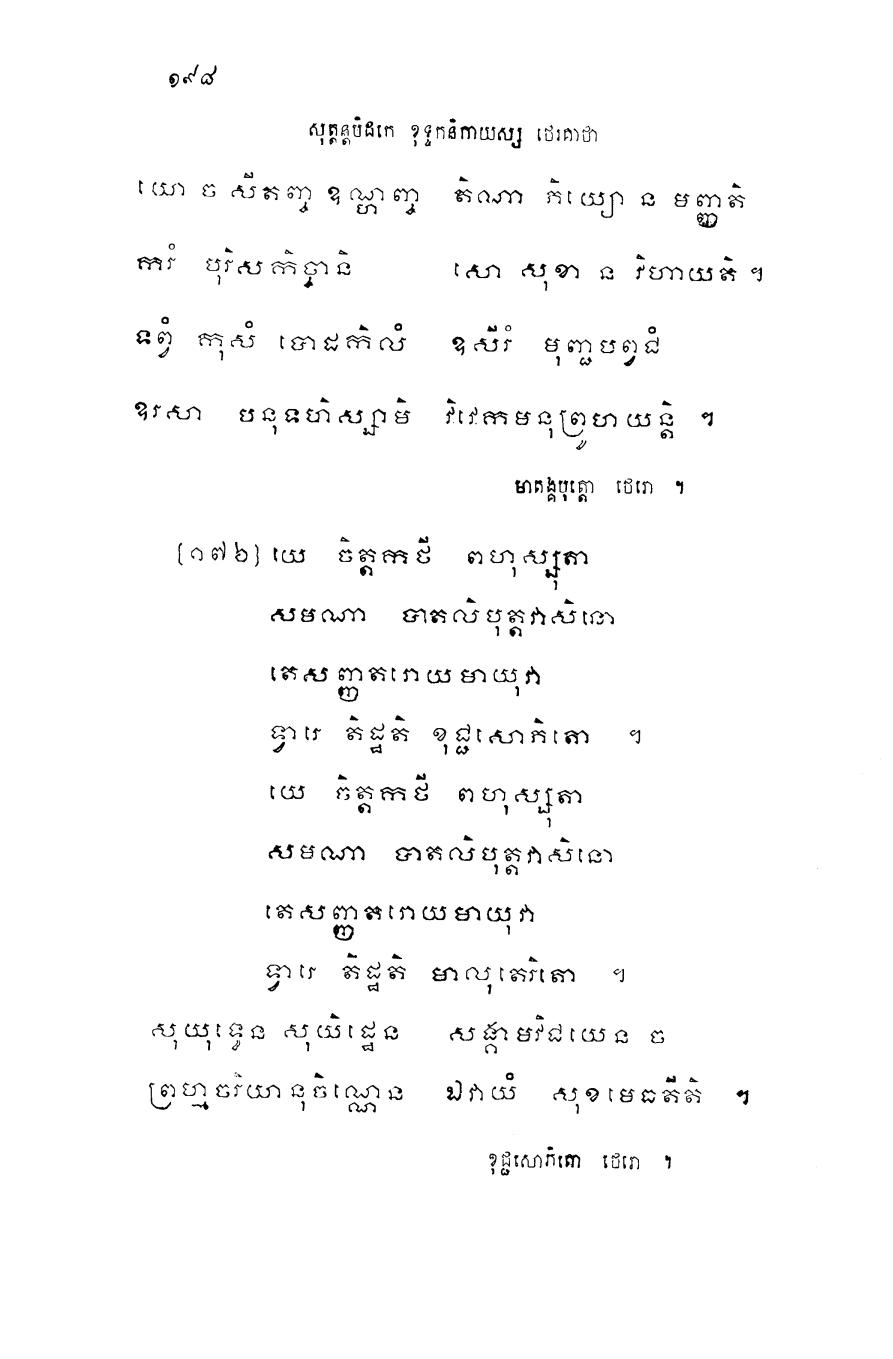 ១៩៨
សុត្តន្តបិដកេ ខុទ្ទកនិកាយស្ស ថេរគាថា
យោ ច សីតញ្ច ឧណ្ហញ្ច តិណា ភិយ្យោ ន មញ្ញតិ
ករំ បុរិសកិច្ចានិ សោ សុខា ន វិហាយតិ ។
ទព្វំ កុសំ បោដកិលំ ឧសីរំ មុញ្ជបព្វជំ
ឧរសា បនុទហិស្សាមិ វិវេកមនុព្រូហយន្តិ ។
មាតង្គបុត្តោ ថេរោ ។
[១៧៦] យេ ចិត្តកថី ពហុស្សុតា
សមណា បាតលិបុត្តវាសិនោ
តេសញ្ញតរោយមាយុវា
ទ្វារេ តិដ្ឋតិ ខុជ្ជសោភិតោ ។
យេ ចិត្តកថី ពហុស្សុតា
សមណា បាតលិបុត្តវាសិនោ
តេសញ្ញតរោយមាយុវា
ទ្វារេ តិដ្ឋតិ មាលុតេរិតោ ។
សុយុទ្ធេន សុយិដ្ឋេន សង្គាមវិជយេន ច
ព្រហ្មចរិយានុចិណ្ណេន ឯវាយំ សុខមេធតីតិ ។
ខុជ្ជសោភិតោ ថេរោ ។